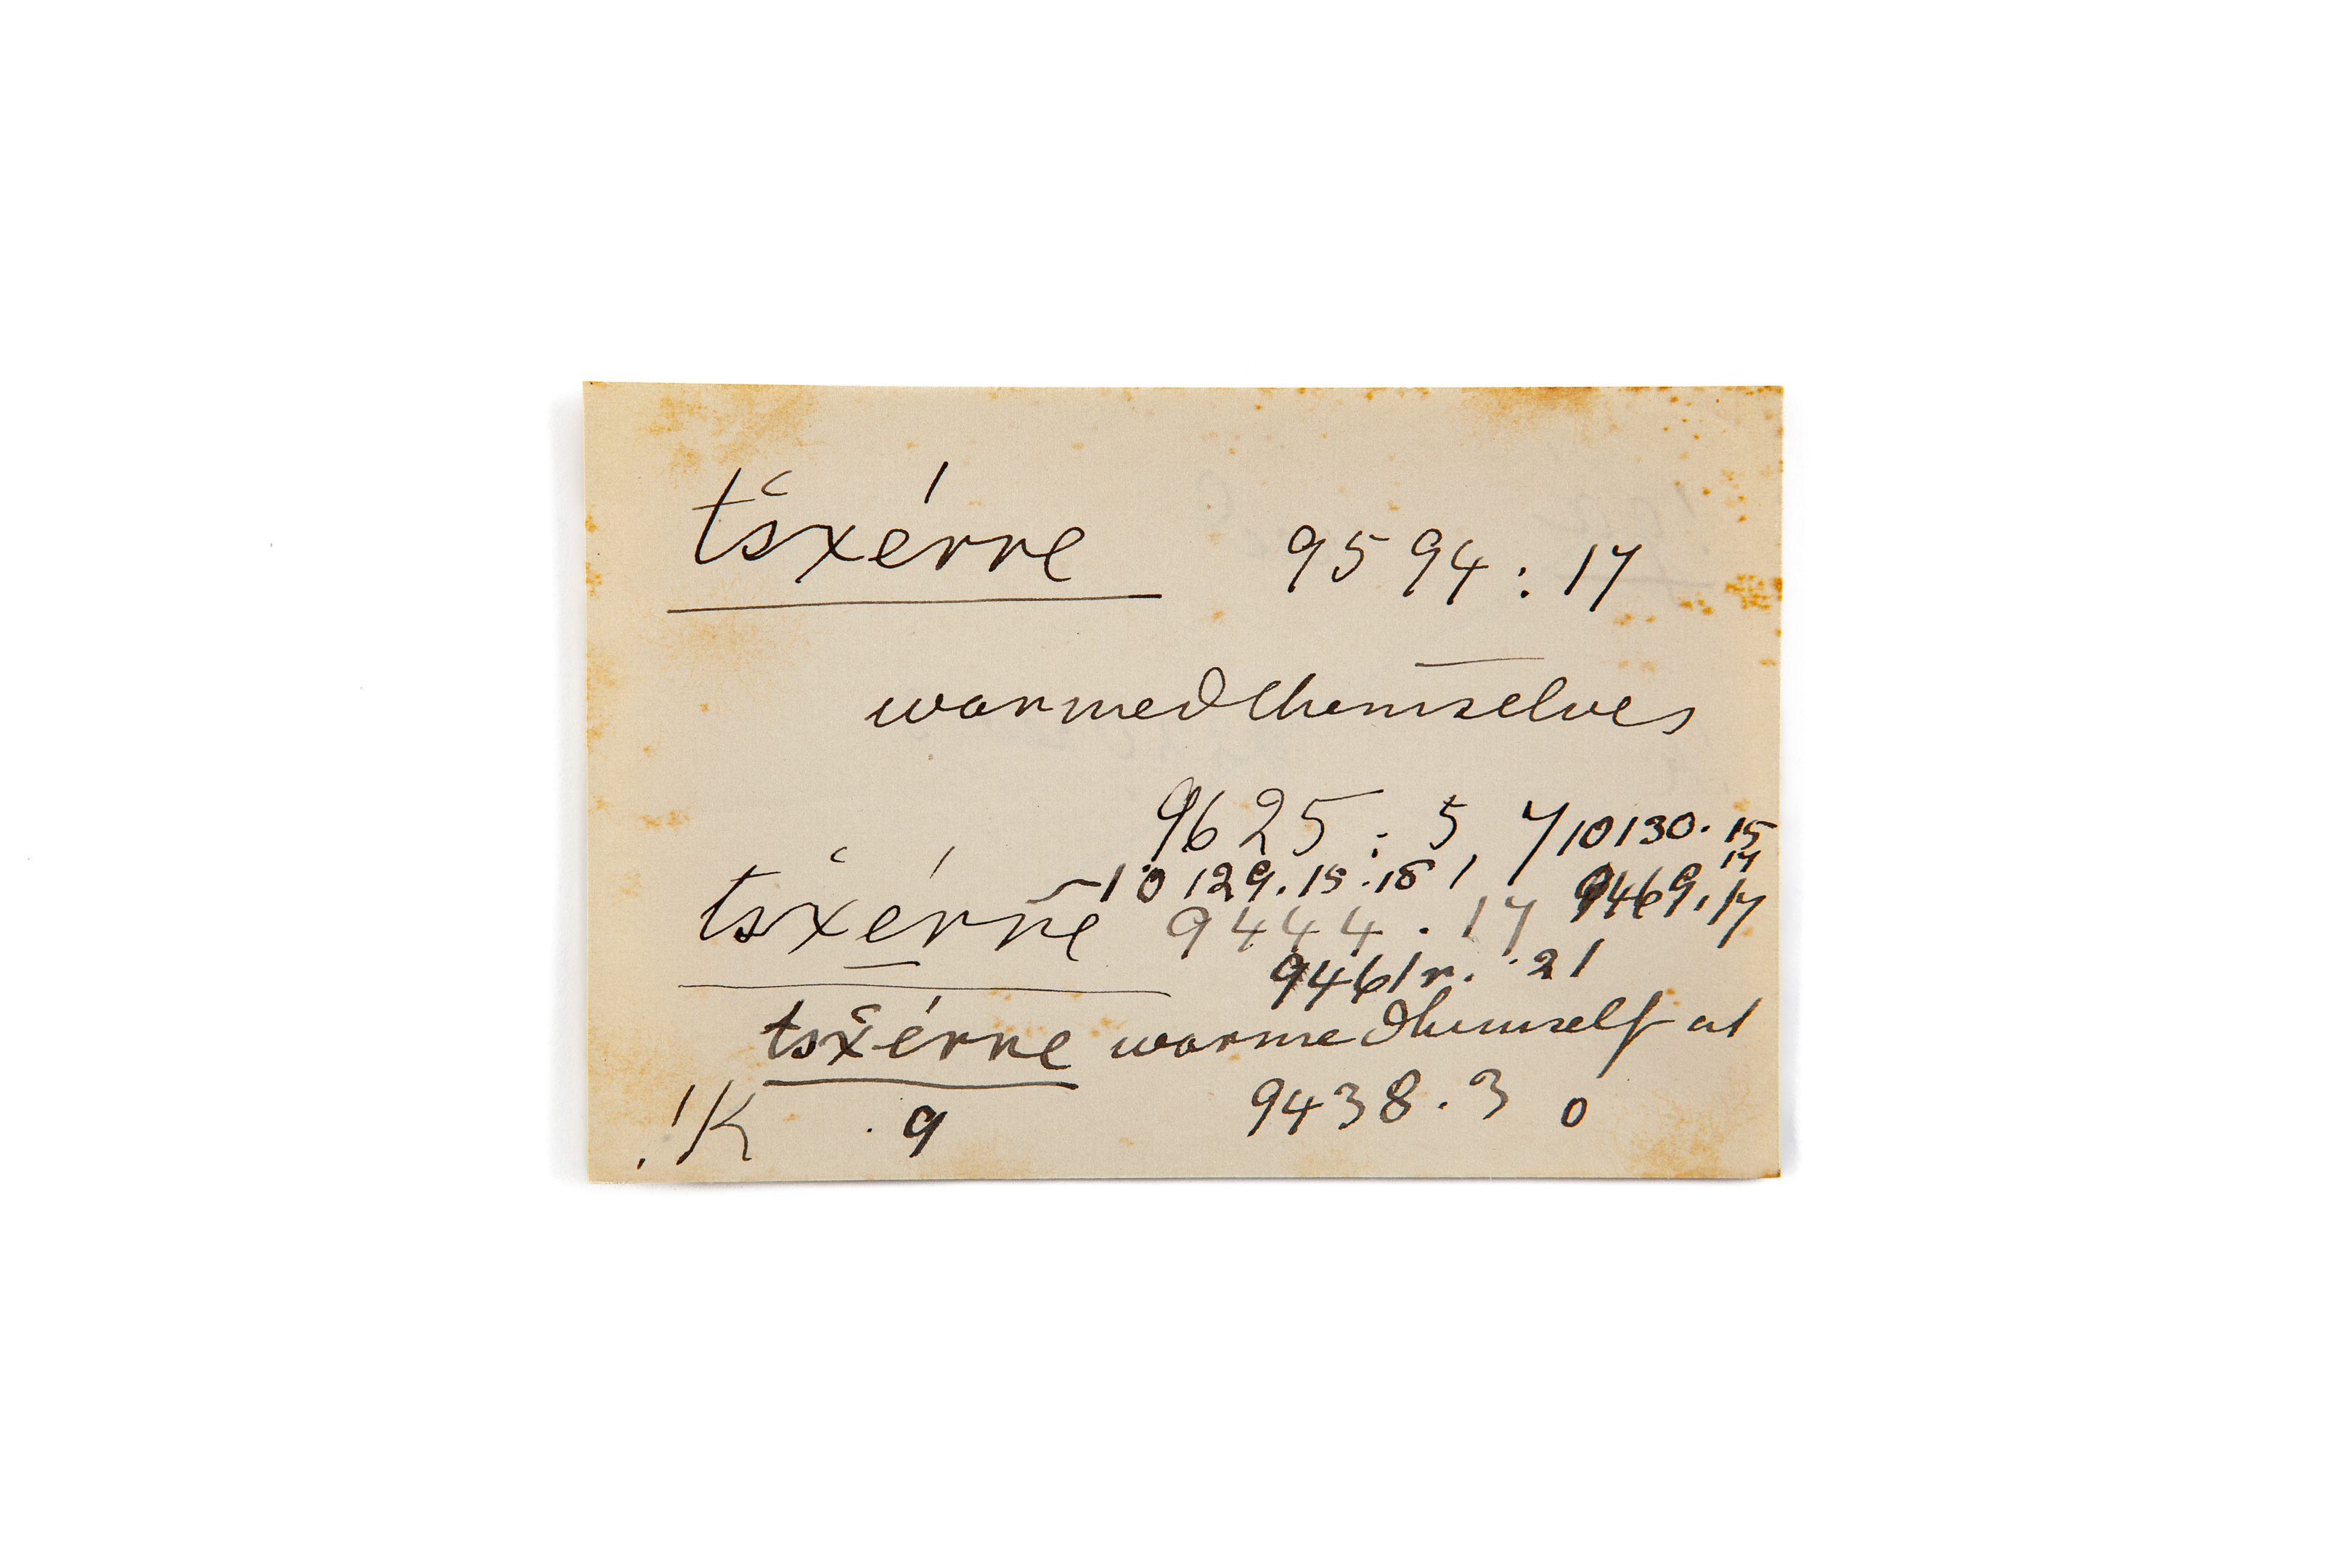 ts̆xérre 9594 : 17
warmed themselves
9625 : 5, 7 10130. 15
17
10129. 15. 18, 9469. 17
ts̆xérre 9444. 17
9461r. 21
ts̆xérre warmed himself at
!K . 9 9438. 3 0